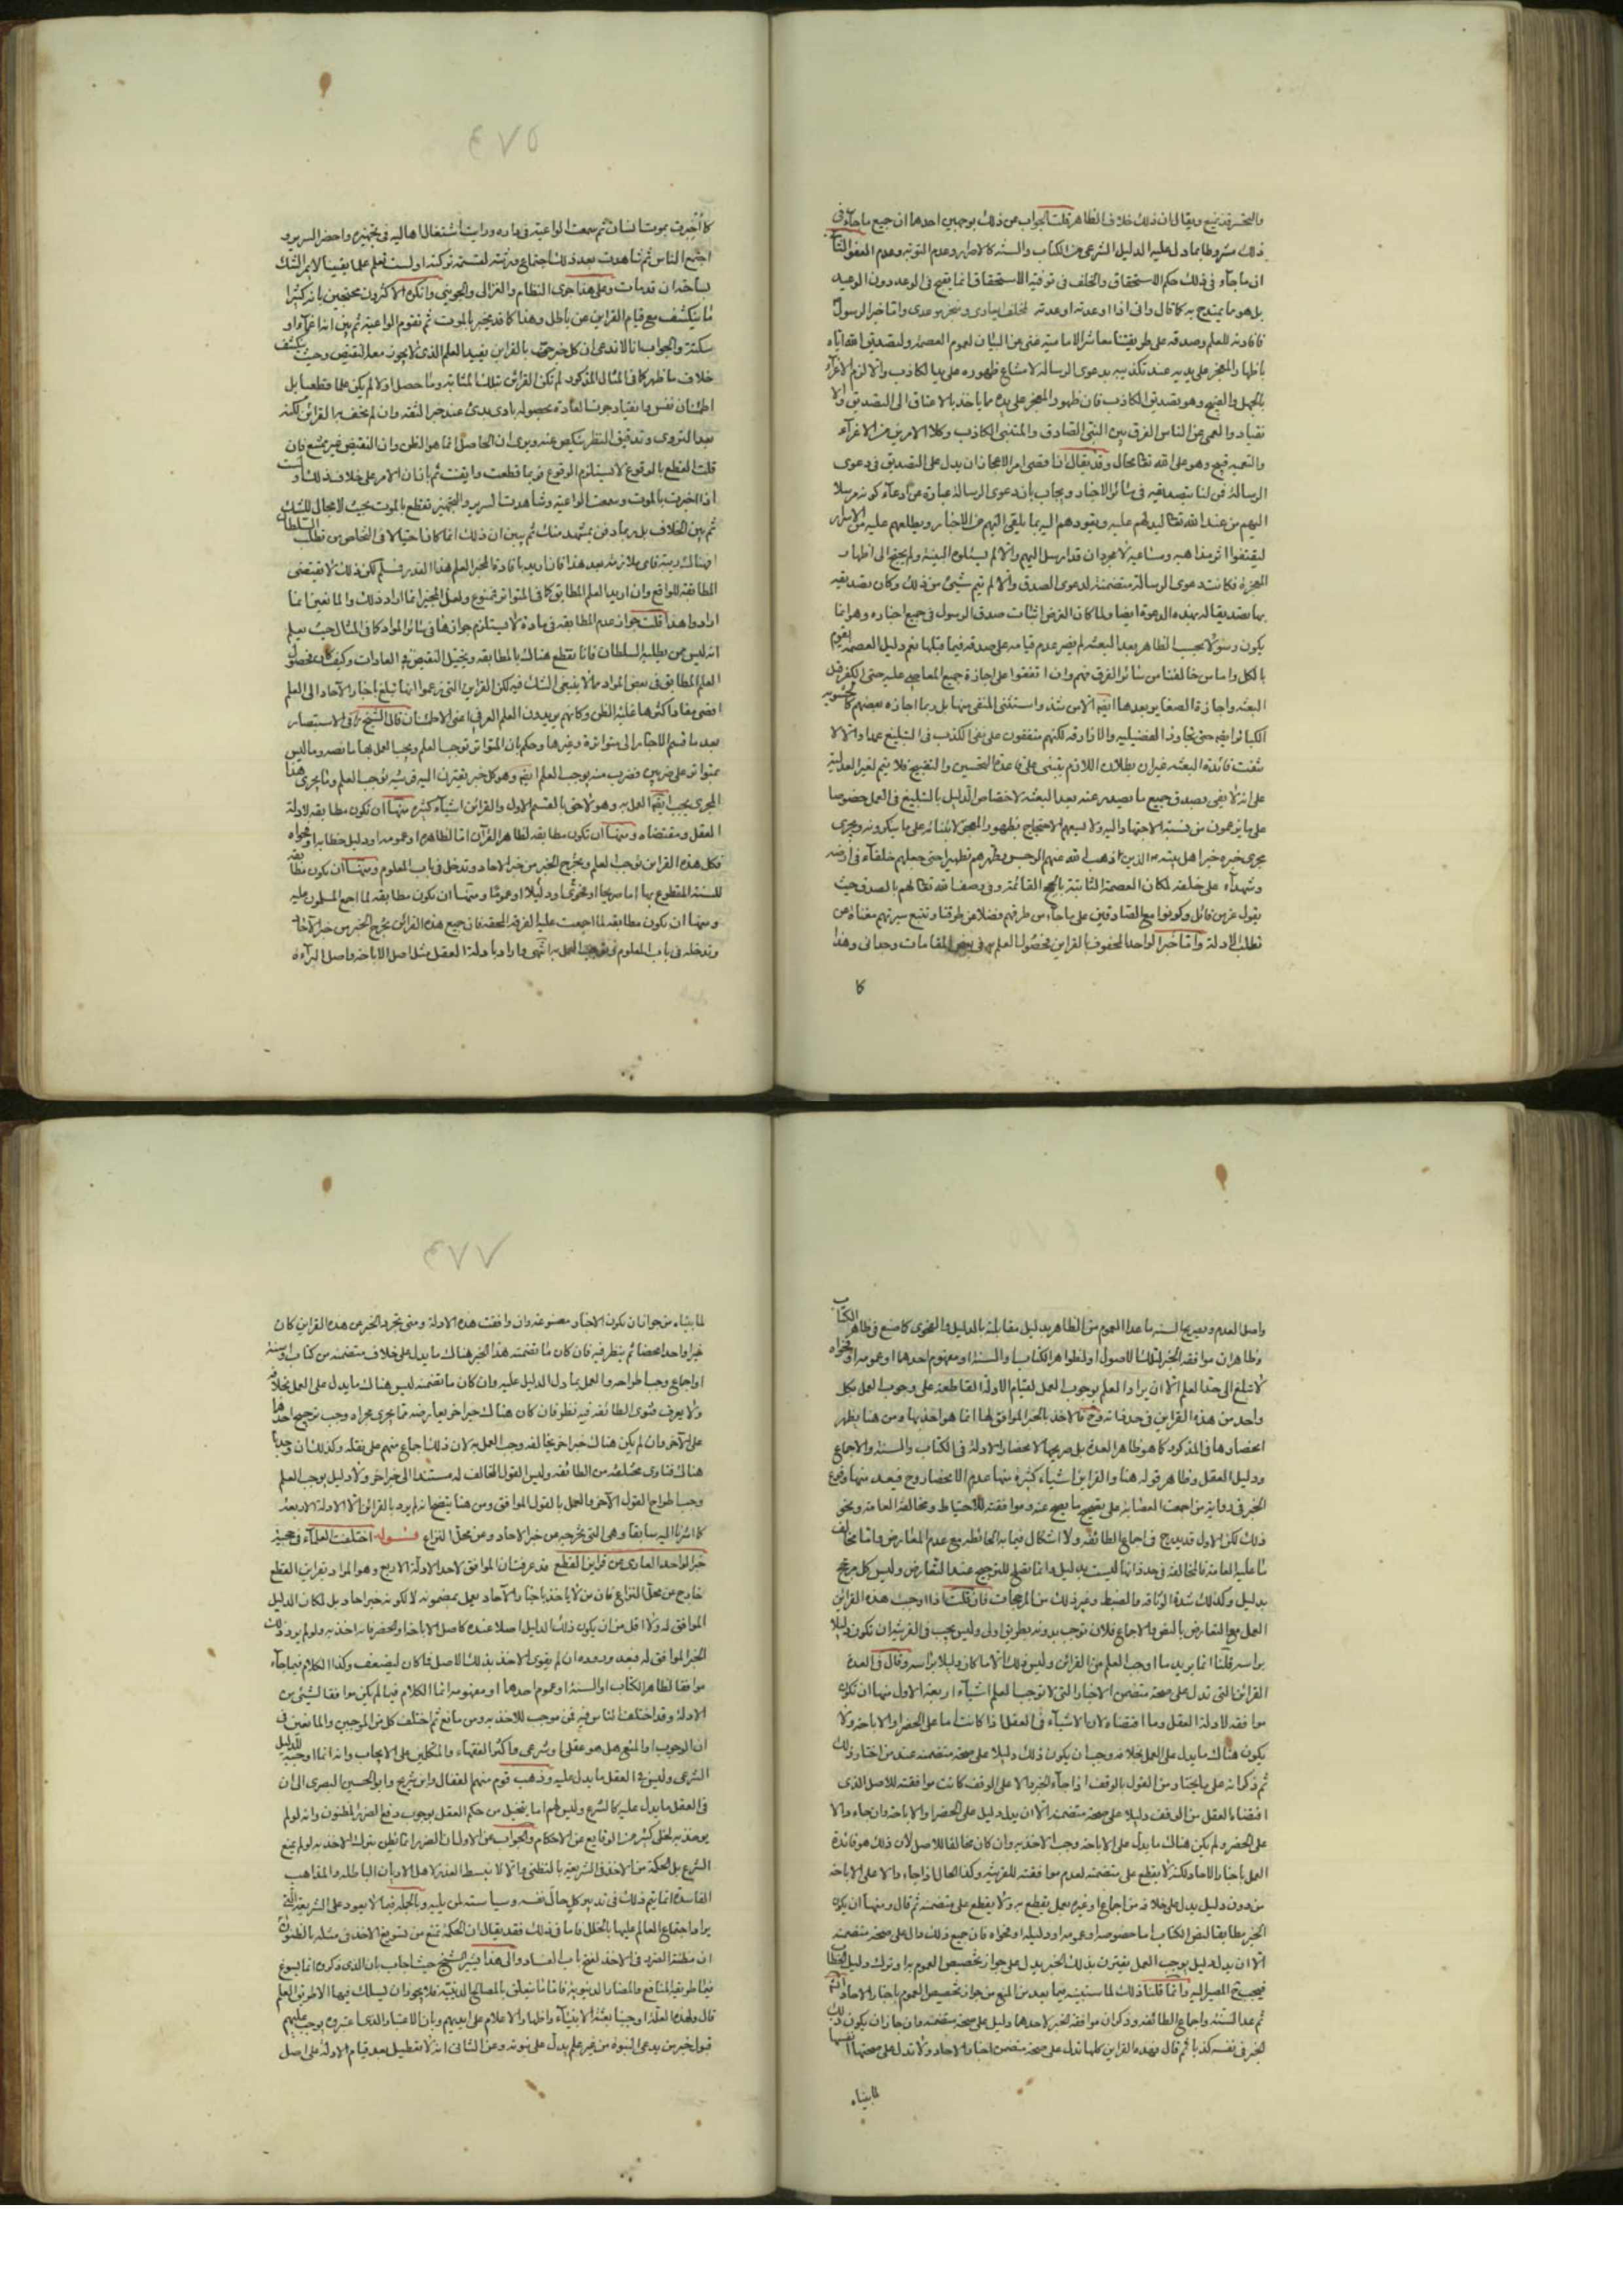 والتخسر قد يمنع ويقال ان ذلك خلاف الظاهر قلت الجواب عن ذلك بوجهين احدهما ان جميع ما جاء فى
ذلك مشروط بما دل عليه الدليل الشرعى من الكتاب والسنه كالاصرار وعدم التوبه وعدم العفو الثانى
ان ما جآء فى ذلك حكم الاستحقاق والخلف فى توفيه الاستحقاق انما يقبح فى الوعد دون الوعيد
بل هو مما يمتدح به كما قال وانى اذا اوعدته او وعدته لمخلف ايعادى ومنجز موعدى واما خبر الرسول
فافادته للعلم وصدقه على طريقتنا معاشر الاماميه غنى عن البيان لعموم العصمه ولتصديق الله اياه
باظهار المعجز على يديه عند تكذيبه بدعوى الرساله لامتناع ظهوره على يد الكاذب والا لزم الاغرآء
بالجهل والقبيح وهو تصديق الكاذب فان ظهور المعجز على يده مما ياخذ بالاعناق الى التصديق والا
نقياد والعمى عن الناس الفرق بين النبى الصادق والمتنبى الكاذب وكلا الامرين من الاغرآء
والتعميه قبيح وهو على الله تعالى محال وقد يقال ان اقصى امر الاعجاز ان يدل على التصديق فى دعوى
الرسالة فمن لنا بتصديقه فى سائر الاخبار ويجاب بان دعوى الرسالة عبارة عن ادعآء كونه مرسلا
اليهم من عند الله تعالى ليدلهم عليه ويقودهم اليه بما يلقى اليهم من الاخبار ويطلعهم عليه من الاسرار
ليقتفوا اثر مذاهبه ومساعيه لا مجرد ان قد ارسل اليهم والا لم يسئلوه البينة ولم يحتج الى اظهار
المعجزة فكانت دعوى الرسالة متضمنة لدعوى الصدق والا لم يتم شيئ من ذلك وكان تصديقه
بها تصديقا له بهذه الدعوة ايضا ولما كان الغرض اثبات صدق الرسول فى جميع اخباره وهو انما
يكون رسولا بحسب الظاهر بعد البعثه لم يضر عدم قيامه على صدقه فيما قبلها نعم دليل العصمه يقوم
بالكل واما من خالفنا من سائر الفرق فهم وان اتفقوا على اجازة جميع المعاصى عليه حتى الكفر قبل
البعثه واجازة الصغاير بعدها ايضا الا من شذ واستثنى المنفر منها بل ربما اجازه بعضهم كالحشويه
الكبائر ايضا حتى تجاوز الفضيليه والازارقه لكنهم متفقون على نفى الكذب فى التبليغ عمدا والا لا
نتفت فائدة البعثه غير ان بطلان اللازم يبتنى على قاعدة التحسين والتقبيح فلا يتم لغير العدليه
على انه لا يفى بصدق جميع ما يصدر عنه بعد البعثه لاختصاص الدليل بالتبليغ فى العمل خصوصا
على ما يزعمون من نسبة الاجتهاد اليه ولا يسعهم الاحتجاج بظهور المعجز لابتنائه على ما ينكرونه ويجرى
مجرى خبره خبر اهل بيته الذين اذهب الله عنهم الرجس وطهرهم تطهيرا حتى جعلهم خلفآء فى ارضه
وشهدآء على خلقه لمكان العصمة الثابتة بالحجج القائمة وفى وصف الله تعالى لهم بالصدق حيث
يقول عز من قائل وكونوا مع الصادقين على ما جآء من طرقهم فضلا عن طرقنا وتتبع سيرتهم مغناة عن
تطلب الادلة واما خبر الواحد المحفوف بالقراين فحصول العلم به فى بعض المقامات وجدانى وهذا
كما
كما اخبرت بموت انسان ثم سمعت الواعية فى داره ورايت اشتغال اهاليه فى تجهيزه واحضر السرير و
اجتمع الناس ثم شاهدت بعد ذلك اجتماع ورثته لقسمة تركته او لست تعلم علما يقينيا لا يمر الشك
بساحته ان قد مات وعلى هذا جرى النظام والغزالى والجوينى وانكره الاكثرون محتجين بانه كثيرا
ما ينكشف مع قيام القراين عن باطل وهذا كما قد يخبر بالموت ثم تقوم الواعيه ثم يبين انه اغمآء او
سكتة والجواب انا لا ندعى ان كل خبر حف بالقراين يفيد العلم الذى لا يجوز معه النقيض وحيث ينكشف
خلاف ما ظهر كما فى المثال المذكور لم تكن القرائن بتلك المثابه وما حصل اولا لم يكن علما قطعيا بل
اطمئنان نفس وانقياد جرت العادة بحصوله بادى بدئ عند خبر الثقه وان لم يحف بالقرائن لكنه
بعد التروى وتدقيق النظر ينكص عنه ويرى ان الحاصل انما هو الظن وان النقيض غير ممتنع فان
قلت القطع بالوقوع لا يستلزم الوقوع فربما قطعت وايقنت ثم بان ان الامر على خلاف ذلك او لست
اذا اخبرت بالموت وسمعت الواعيه وشاهدت السرير والتجهيز تقطع بالموت بحيث لا مجال للشك
ثم يبين الخلاف بل ربما دفن بمشهد منك ثم يبين ان ذلك انما كان احتيالا فى التخلص من تطلب السلطان
المطابقة للواقع وان اريد العلم المطابق كما فى المتواتر فممنوع ولعل المجيز انما اراد ذلك والمانعين انما
ارادوا هذا قلت جواز عدم المطابقه فى مادة لا يستلزم جوازها فى سائر المواد كما فى المثال حيث يعلم
انه ليس ممن يطلبه السلطان فانا نقطع هناك بالمطابقه ويختيل النقيض فى العادات وكيف كان فحصول
العلم المطابق فى بعض المواد مما لا ينبغى الشك فيه لكن القراين التى زعموا انها تبلغ باخبار الاحاد الى العلم
اقصى مفاد اكثرها غلبة الظن وكانهم يريدون العلم العرفى اعنى الاطمئنان قال الشيخ فى الاستبصار
بعد ما قسم الاخبار الى متواترة وغيرها وحكم بان المتواتر توجب العلم ويجب العمل بها ما نصه وما ليس
بمتواتر على ضربين فضرب منه يوجب العلم ايضا وهو كل خبر يقترن اليه قرينة توجب العلم وما يجرى هذا
المجرى يجب ايضا العمل به وهو لاحق بالقسم الاول والقراين اشيآء كثيره منها ان تكون مطابقه لادلة
العقل ومقتضاه ومنها ان تكون مطابقه لظاهر القرآن اما لظاهره او عمومه او دليل خطابه او فحواه
فكل هذه القراين توجب العلم وتخرج الخبر من خبر الاحاد وتدخل فى باب العلوم ومنها ان يكون مطابقه
للسنة المقطوع بها اما صريحا او فحوى او دليلا او عموما ومنها ان تكون مطابقه لما اجمع المسلمون عليه
ومنها ان يكون مطابقه لما اجمعت عليه الفرقه المحقه فان جميع هذه القرائن تخرج الخبر من خبر الآحاد
وتدخله فى باب المعلوم وتوجب العمل به انتهى واراد بادلة العقل مثل اصل الاباحه واصل البرآءة
واصل العدم وبصريح السنه ما عدا العموم من الظاهر بدليل مقابلته بالدليل والفحوى كما صنع فى ظاهر الكتاب
وظاهر ان موافقه الخبر لتلك الاصول او لظواهر الكتاب والسنة او مفهوم احدهما او عمومه او فحواه
لا تبلغ الى حد العلم الا ان يراد العلم بوجوب العمل لقيام الادلة القاطعة على وجوب العمل بكل
واحد من هذه القراين فى حد ذاته وح فالاخذ بالخبر الموافق لها انما هو اخذ بها ومن هنا يظهر
انحصارها فى المذكور كما هو ظاهر العدة بل صريحها لانحصار الادلة فى الكتاب والسنة والاجماع
ودليل العقل وظاهر قوله هنا والقراين اشياء كثيرة منها عدم الانحصار وح فيعد منها وقوع
الخبر فى رواية من اجمعت العصابة على تصحيح ما يصح عنه وموافقته للاحتياط ومخالفة العامة ونحو
ذلك لكن الاول قد يندرج فى اجماع الطائفه ولا اشكال فيما به الحائطه مع عدم المعارض واما مخالفه
ما عليه العامة فالمخالفة فى حد ذاتها ليست بدليل وانما تصلح للترجيح عند التعارض وليس كل مرجح
بدليل وكذلك شدة الوثاقه والضبط وغير ذلك من المرجحات فان قلت اذا اوجبت هذه القرائن
العمل مع التعارض بالنص والاجماع فلان توجب بدونه بطريق اولى وليس يجب فى القرينة ان تكون دليلا
براسه قلنا انما نريد ما اوجب العلم من القرائن وليس ذلك الا ما كان دليلا براسه وقال فى العدة
القرائن التى تدل على صحة متضمن الاخبار التى لا توجب العلم اشيآء اربعة الاول منها ان تكون
موافقه لادلة العقل وما اقتضاه لان الاشيآء فى العقل اذا كانت اما على الحضر او الاباحه ولا
يكون هناك ما يدل على العمل بخلافه وجب ان يكون ذلك دليلا على صحة متضمنه عند من اختار ذلك
ثم ذكر انه على ما يختاره من القول بالوقف اذا جآء الخبر دالا على الوقف كانت موافقته للاصل الذى
اقتضاه العقل من الوقف دليلا على صحة متضمنه الا ان يدل دليل على الحضر او الاباحه وان جاء دالا
على الحضر ولم يكن هناك ما يدل على الاباحه وجب الاخذ به وان كان مخالفا للاصل لان ذلك هو فائدة
العمل باخبار الاحاد ولكنه لا يقطع على متضمنه لعدم موافقته للقرينه وكذا الحال اذا جاء دالا على الاباحه
من دون دليل يدل على خلافه من اجماع او غيره يعمل به ولا يقطع على متضمنه ثم قال ومنها ان يكون
الخبر مطابقا لنص الكتاب اما خصوصه او عمومه او دليله او فحواه فان جميع ذلك دال على صحة متضمنه
الا ان يدل دليل يوجب العمل يقترن بذلك الخبر يدل على جواز تخصيص العموم به او ترك دليل الخطاب
فيجب ح المصير اليه وانما قلنا ذلك لما سنبينه فيما بعد من المنع من جواز تخصيص العموم باخبار الاحاد
ثم عد السنه واجماع الطائفه وذكر ان موافقه الخبر لاحدها دليل على صحة متضمنه وان جاز ان يكون ذلك
الخبر فى نفسه كذبا ثم قال فهذه القراين كلها تدل على صحة متضمن اخبار الاحاد ولا تدل على صحتها انفسها
لما بيناه
لما بيناه من جواز ان يكون الاخبار مصنوعه وان وافقت هذه الادلة ومتى تجرد الخبر من هذه القراين كان
خبرا واحدا محضا ثم ينظر فيه فان كان ما تضمنه هذا الخبر هناك ما يدل على خلاف متضمنه من كتاب او سنة
او اجماع وجب اطراحه والعمل بما دل الدليل عليه وان كان ما تضمنه ليس هناك ما يدل على العمل بخلافه
ولا يعرف فتوى الطائفه فيه نظر فان كان هناك خبر اخر يعارضه مما يجرى مجراه وجب ترجيح احدهما
على الآخر وان لم يكن هناك خبر اخر يخالفه وجب العمل به لان ذلك اجماع منهم على نقله وكذلك ان وجدنا
هناك فتاوى مختلفة من الطائفه وليس القول المخالف له مستندا الى خبر اخر ولا دليل يوجب العلم
وجب اطراح القول الآخر والعمل بالقول الموافق ومن هنا يتضح انه لم يرد بالقرائن الا الادلة الاربعة
كما اشرنا اليه سابقا وهى التى تخرجه من خبر الاحاد ومن محل النزاع قـــوله اختلفت العلمآء فى حجية
خبر الواحد العارى من قراين القطع قد عرفت ان الموافق لاحد الادلة الاربع وهو المراد بقراين القطع
خارج عن محل النزاع فان من لا ياخذ باخبار الآحاد يعمل بمضمونه لا لكونه خبر احاد بل لمكان الدليل
الموافق له ولا اقل من ان يكون ذلك الدليل اصلا عنده كاصل الاباحه او الحضر فانه اخذ به ولو لم يرد ذلك
الخبر الموافق له فبعد وروده ان لم يقوى الاخذ بذلك الاصل فما كان ليضعف وكذا الكلام فيما جآء
موافقا لظاهر الكتاب او السنة او عموم احدهما او مفهومه انما الكلام فيما لم يكن موافقا لشيئ من
الادلة وقد اختلف الناس فيه فمن موجب للاخذ به ومن مانع ثم اختلف كل من الموجبين والمانعين فى
ان الوجوب او المنع هل هو عقلى او شرعى واكثر الفقهاء والمتكلمين على الايجاب وانه انما اوجبه الدليل
الشرعى وليس فى العقل ما يدل عليه وذهب قوم منهم القفال وابن شريح وابو الحسين البصرى الى ان
فى العقل ما يدل عليه كالشرع وليس لهم اما يتخيل من حكم العقل بوجوب دفع الضرر المظنون وانه لو لم
يوخذ به لخلى كثير من الوقايع عن الاحكام والجواب عن الاول ان الضرر انما يظن بترك الاخذ به لو لم يمنع
الشرع بل الحكمة من الاخذ فى الشريعة بالظن والا لا نبسط العذر لاهل الاديان الباطله والمذاهب
الفاسدة انما يتم ذلك فى تدبير كل حال نفسه وسياسته لمن يليه وبالجمله فيما لا يعود على الشريعة التى
يراد اجتماع العالم عليها بالخلل فاما فى ذلك فقد يقال ان الحكمة تمنع من تسويغ الاخذ فى مثله بالظنون
ان مظنة الضرر فى الاخذ لفتح باب الفساد والى هذا يشير الشيخ حيث اجاب بان الذى ذكروه انما يسوغ
فيما طريقه المنافع والمضار الدنيوية فاما ما يتعلق بالمصالح الدينيه فلا يجوز ان يسلك فيها الا طريق العلم
قال ولهذه العلة اوجبنا بعثة الانبيآء واظهار الاعلام على ايديهم وبان الاعتبار الذى اعتبروه يوجب عليهم
قبول خبر من يدعى النبوة من غير علم يدل على نبوته وعن الثانى انه لا تعطيل بعد قيام الادلة على اصل